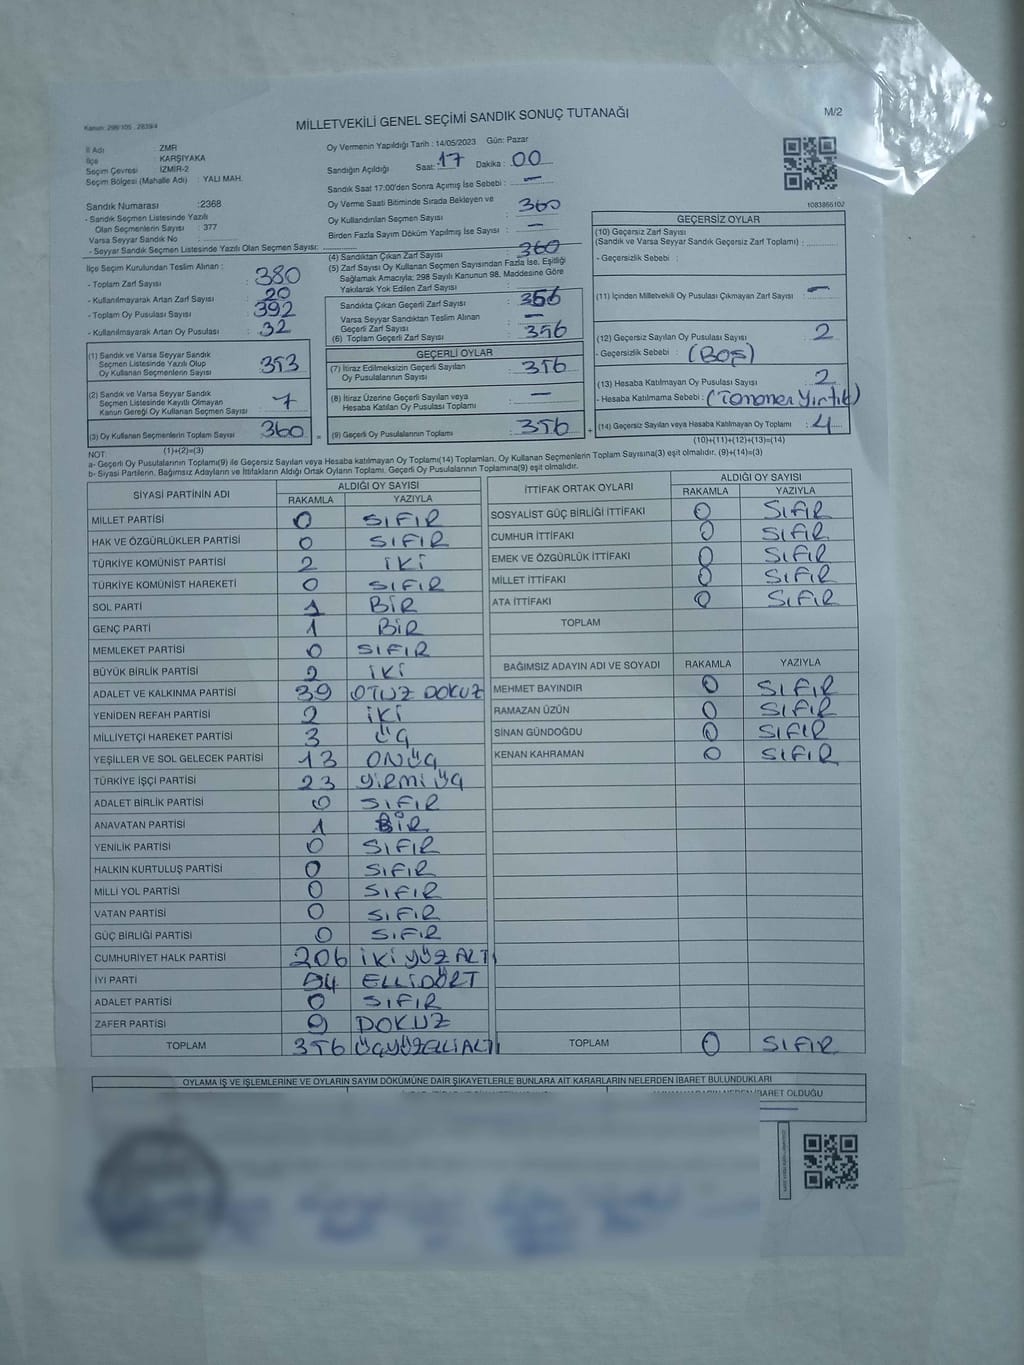 Kanun: 298/105 . 2839/4
MİLLETVEKİLİ GENEL SEÇİMİ SANDIK SONUÇ TUTANAĞI
M/2
İl Adı : ZMR
İlçe : KARŞIYAKA
Seçim Çevresi : İZMİR-2
Seçim Bölgesi (Mahalle Adı) : YALI MAH.
Sandık Numarası :2368
- Sandık Seçmen Listesinde Yazılı
Olan Seçmenlerin Sayısı : 377
Varsa Seyyar Sandık No :
- Seyyar Sandık Seçmen Listesinde Yazılı Olan Seçmen Sayısı:
Oy Vermenin Yapıldığı Tarih : 14/05/2023 Gün: Pazar
Sandığın Açıldığı Saat: 17 Dakika : 00
Sandık Saat 17.00'den Sonra Açımış İse Sebebi : —
Oy Verme Saati Bitiminde Sırada Bekleyen ve
Oy Kullandırılan Seçmen Sayısı : 360
Birden Fazla Sayım Döküm Yapılmış İse Sayısı : —
1083865102
İlçe Seçim Kurulundan Teslim Alınan :
- Toplam Zarf Sayısı : 380
- Kullanılmayarak Artan Zarf Sayısı : 20
- Toplam Oy Pusulası Sayısı : 392
- Kullanılmayarak Artan Oy Pusulası : 32
(1) Sandık ve Varsa Seyyar Sandık
Seçmen Listesinde Yazılı Olup
Oy Kullanan Seçmenlerin Sayısı : 353
(2) Sandık ve Varsa Seyyar Sandık
Seçmen Listesinde Kayıtlı Olmayan
Kanun Gereği Oy Kullanan Seçmen Sayısı : 7
(3) Oy Kullanan Seçmenlerin Toplam Sayısı : 360
(1)+(2)=(3)
(4) Sandıktan Çıkan Zarf Sayısı : 360
(5) Zarf Sayısı Oy Kullanan Seçmen Sayısından Fazla İse, Eşitliği
Sağlamak Amacıyla; 298 Sayılı Kanunun 98. Maddesine Göre
Yakılarak Yok Edilen Zarf Sayısı :
Sandıkta Çıkan Geçerli Zarf Sayısı : 356
Varsa Seyyar Sandıktan Teslim Alınan
Geçerli Zarf Sayısı : —
(6) Toplam Geçerli Zarf Sayısı : 356
GEÇERLİ OYLAR
(7) İtiraz Edilmeksizin Geçerli Sayılan
Oy Pusulalarının Sayısı : 356
(8) İtiraz Üzerine Geçerli Sayılan veya
Hesaba Katılan Oy Pusulası Toplamı : —
= (9) Geçerli Oy Pusulalarının Toplamı : 356 +
GEÇERSİZ OYLAR
(10) Geçersiz Zarf Sayısı
(Sandık ve Varsa Seyyar Sandık Geçersiz Zarf Toplamı) :
- Geçersizlik Sebebi :
(11) İçinden Milletvekili Oy Pusulası Çıkmayan Zarf Sayısı : —
(12) Geçersiz Sayılan Oy Pusulası Sayısı : 2
- Geçersizlik Sebebi : (BOŞ)
(13) Hesaba Katılmayan Oy Pusulası Sayısı : 2
- Hesaba Katılmama Sebebi : (Tamamen Yırtık)
(14) Geçersiz Sayılan veya Hesaba Katılmayan Oy Toplamı : 4
(10)+(11)+(12)+(13)=(14)
NOT:
a- Geçerli Oy Pusulalarının Toplamı(9) ile Geçersiz Sayılan veya Hesaba katılmayan Oy Toplamı(14) Toplamları, Oy Kullanan Seçmenlerin Toplam Sayısına(3) eşit olmalıdır. (9)+(14)=(3)
b- Siyasi Partilerin, Bağımsız Adayların ve İttifakların Aldığı Ortak Oyların Toplamı, Geçerli Oy Pusulalarının Toplamına(9) eşit olmalıdır.
SİYASİ PARTİNİN ADI ALDIĞI OY SAYISI
RAKAMLA YAZIYLA
MİLLET PARTİSİ 0 SIFIR
HAK VE ÖZGÜRLÜKLER PARTİSİ 0 SIFIR
TÜRKİYE KOMÜNİST PARTİSİ 2 İKİ
TÜRKİYE KOMÜNİST HAREKETİ 0 SIFIR
SOL PARTİ 1 BİR
GENÇ PARTİ 1 BİR
MEMLEKET PARTİSİ 0 SIFIR
BÜYÜK BİRLİK PARTİSİ 2 İKİ
ADALET VE KALKINMA PARTİSİ 39 OTUZ DOKUZ
YENİDEN REFAH PARTİSİ 2 İKİ
MİLLİYETÇİ HAREKET PARTİSİ 3 ÜÇ
YEŞİLLER VE SOL GELECEK PARTİSİ 13 ONÜÇ
TÜRKİYE İŞÇİ PARTİSİ 23 YİRMİ ÜÇ
ADALET BİRLİK PARTİSİ 0 SIFIR
ANAVATAN PARTİSİ 1 BİR
YENİLİK PARTİSİ 0 SIFIR
HALKIN KURTULUŞ PARTİSİ 0 SIFIR
MİLLİ YOL PARTİSİ 0 SIFIR
VATAN PARTİSİ 0 SIFIR
GÜÇ BİRLİĞİ PARTİSİ 0 SIFIR
CUMHURİYET HALK PARTİSİ 206 İKİ YÜZ ALTI
İYİ PARTİ 54 ELLİDÖRT
ADALET PARTİSİ 0 SIFIR
ZAFER PARTİSİ 9 DOKUZ
TOPLAM 356 ÜÇYÜZELLİALTI
İTTİFAK ORTAK OYLARI ALDIĞI OY SAYISI
RAKAMLA YAZIYLA
SOSYALİST GÜÇ BİRLİĞİ İTTİFAKI 0 SIFIR
CUMHUR İTTİFAKI 0 SIFIR
EMEK VE ÖZGÜRLÜK İTTİFAKI 0 SIFIR
MİLLET İTTİFAKI 0 SIFIR
ATA İTTİFAKI 0 SIFIR
TOPLAM
BAĞIMSIZ ADAYIN ADI VE SOYADI RAKAMLA YAZIYLA
MEHMET BAYINDIR 0 SIFIR
RAMAZAN ÜZÜN 0 SIFIR
SİNAN GÜNDOĞDU 0 SIFIR
KENAN KAHRAMAN 0 SIFIR
TOPLAM 0 SIFIR
OYLAMA İŞ VE İŞLEMLERİNE VE OYLARIN SAYIM DÖKÜMÜNE DAİR ŞİKAYETLERLE BUNLARA AİT KARARLARIN NELERDEN İBARET BULUNDUKLARI
NEDEN İBARET OLDUĞU